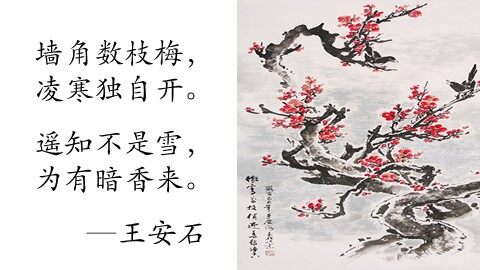 墙角数枝梅，
凌寒独自开。
遥知不是雪，
为有暗香来。
—王安石